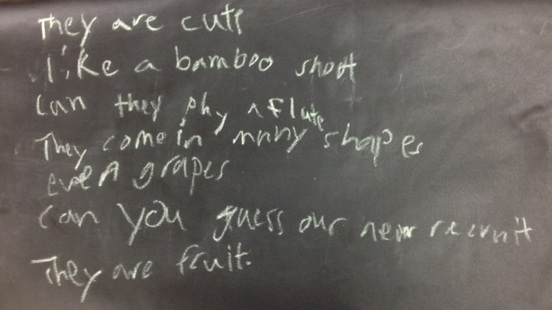 They are cute
like a bamboo shoot
Can they play a flute
They come in many shapes
even grapes
Can you guess our new recruit
They are fruit.